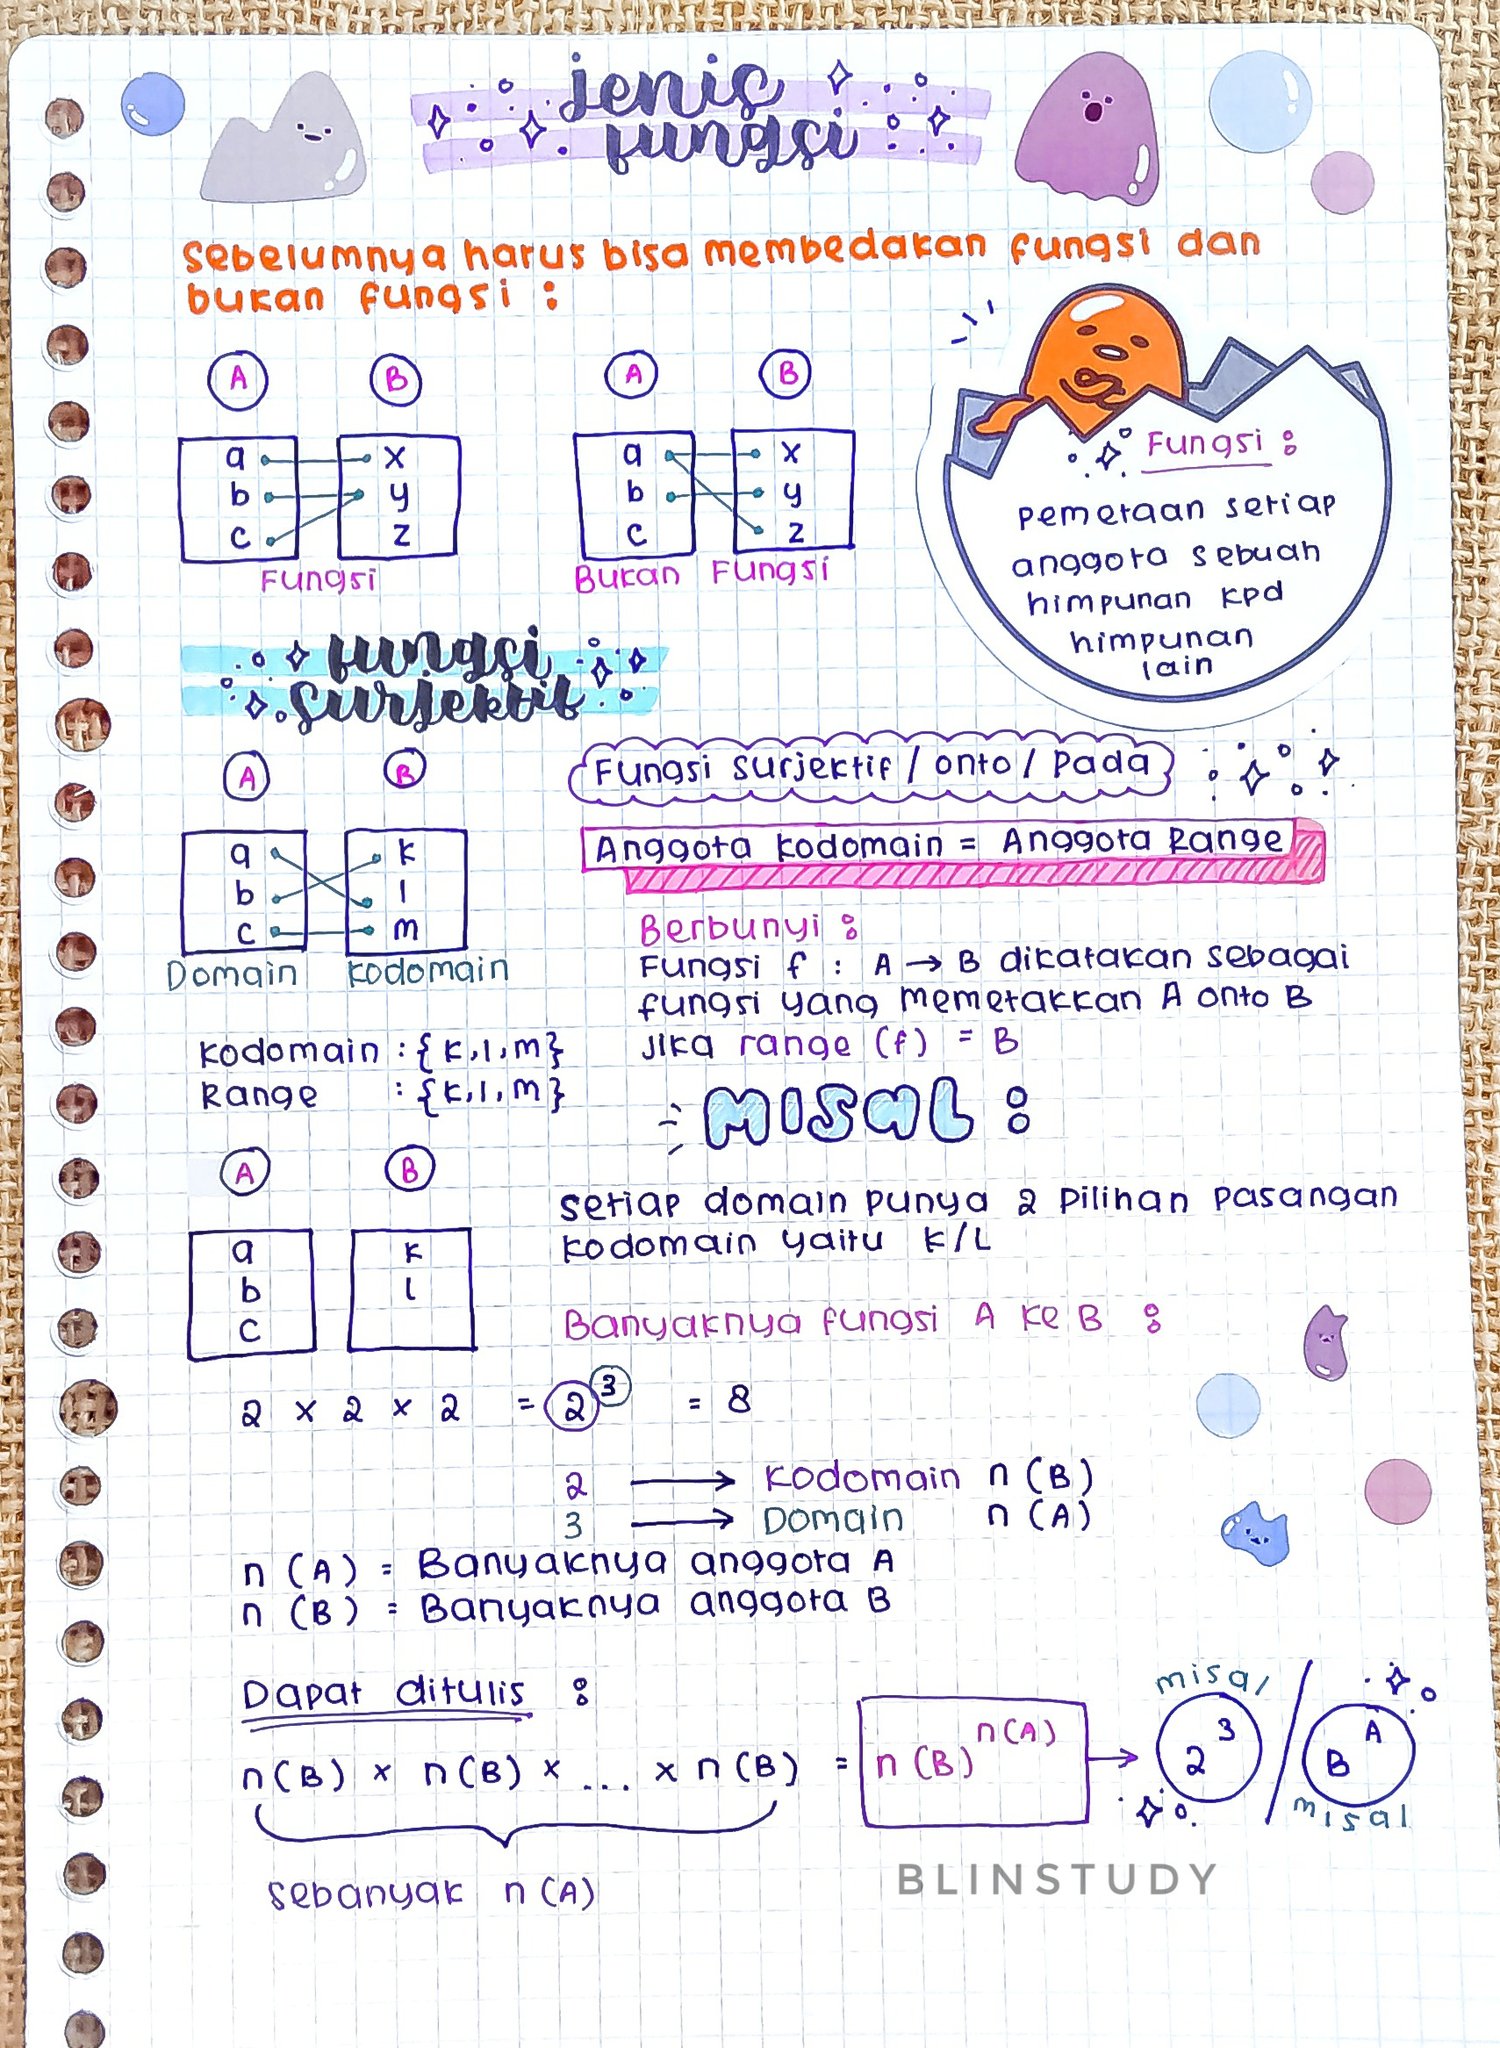 jenis
fungsi
Sebelumnya harus bisa membedakan fungsi dan
bukan fungsi :
A B
a x
b y
c z
Fungsi
A B
a x
b y
c z
Bukan Fungsi
Fungsi :
pemetaan setiap
anggota sebuah
himpunan kpd
himpunan
lain
fungsi
surjektif
A B
a k
b l
c m
Domain Kodomain
Kodomain : {k, l, m}
Range : {k, l, m}
Fungsi surjektif / onto / Pada
Anggota Kodomain = Anggota Range
Berbunyi :
Fungsi f : A → B dikatakan sebagai
fungsi yang memetakkan A onto B
Jika range (f) = B
MISAL :
A B
a k
b l
c
setiap domain punya 2 pilihan pasangan
kodomain yaitu K/L
Banyaknya fungsi A ke B :
2 × 2 × 2 = 2³ = 8
2 → Kodomain n (B)
3 → Domain n (A)
n (A) = Banyaknya anggota A
n (B) = Banyaknya anggota B
Dapat ditulis :
n(B) × n(B) × ... × n(B) = n(B)^n(A) → 2³ / B^A
misal
misal
sebanyak n (A)
BLINSTUDY